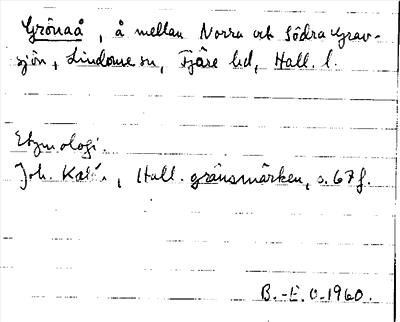 Grönaå, å mellan Norra och Södra Grav-
sjön, Lindome sn, Fjäre hd, Hall. l.
Etymologi.
Joh. Kalén, Hall. gränsmärken, s. 67 f.
B.-E. O. 1960.